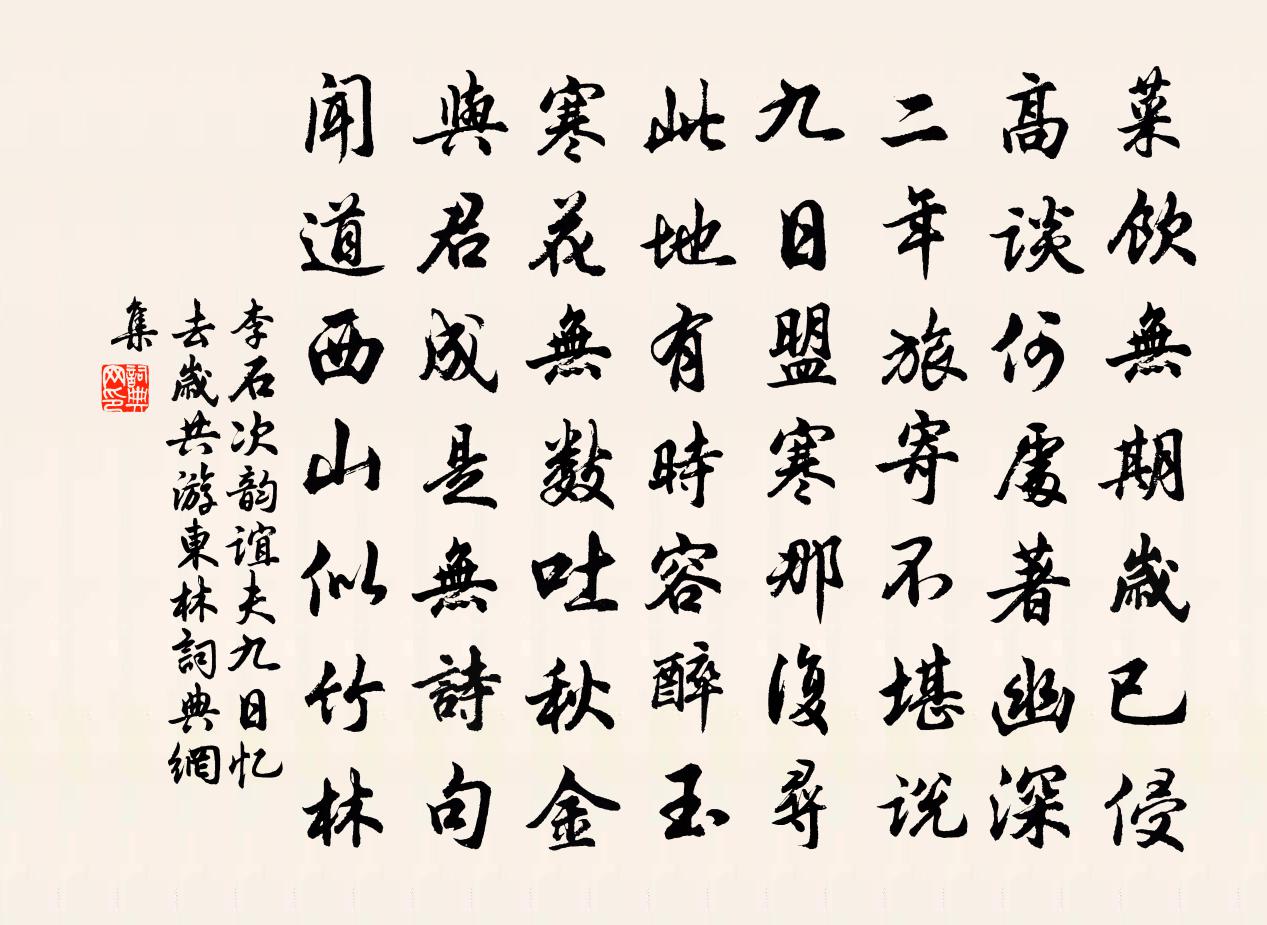 菜飲無期歲已侵
高談何處著幽深
二年旅寄不堪说
九日盟寒那復尋
此地有時容醉玉
寒花無数吐秋金
與君成是無詩句
聞道西山似竹林
李石次韵谊夫九日忆
去歲共游東林詞典網
集
詞典网印